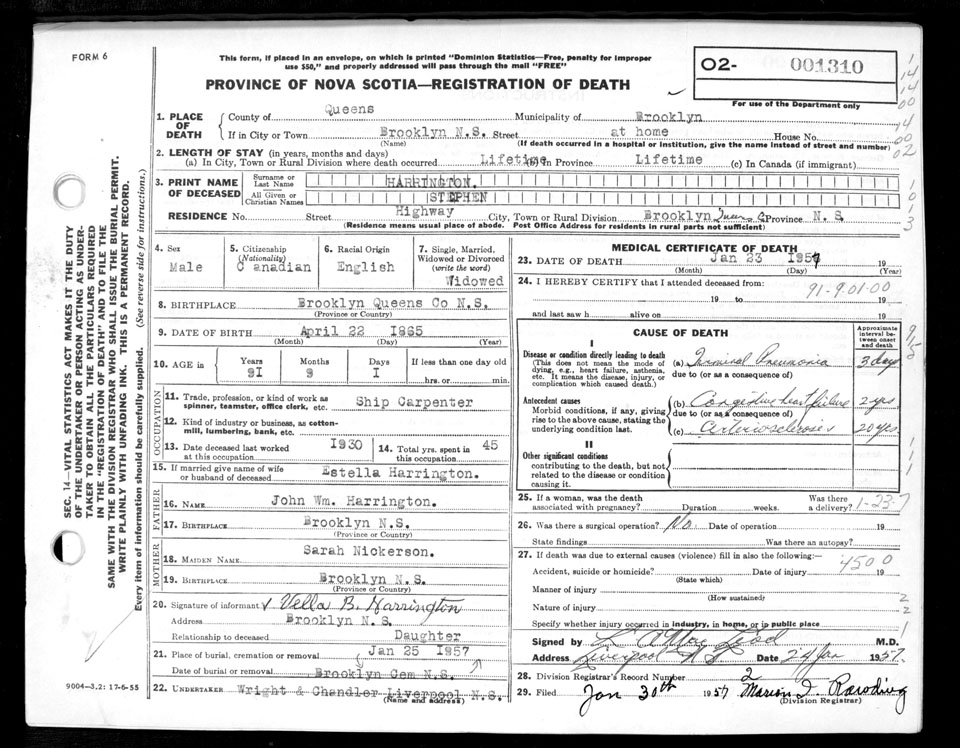 FORM 6
This form, if placed in an envelope, on which is printed "Dominion Statistics—Free, penalty for improper
use $50," and properly addressed will pass through the mail "FREE"
PROVINCE OF NOVA SCOTIA—REGISTRATION OF DEATH
O2- 001310
For use of the Department only
1. PLACE OF DEATH
County of Queens Municipality of Brooklyn
If in City or Town Brooklyn N.S. Street at home House No.
(Name) (If death occurred in a hospital or institution, give the name instead of street and number)
2. LENGTH OF STAY (in years, months and days)
(a) In City, Town or Rural Division where death occurred Lifetime (b) in Province Lifetime (c) In Canada (if immigrant)
3. PRINT NAME OF DECEASED
Surname or Last Name HARRINGTON.
All Given or Christian Names STEPHEN
RESIDENCE No. Street Highway City, Town or Rural Division Brooklyn Province N. S.
(Residence means usual place of abode. Post Office Address for residents in rural parts not sufficient)
4. Sex
Male
5. Citizenship
(Nationality)
C anadian
6. Racial Origin
English
7. Single, Married, Widowed or Divorced
(write the word)
Widowed
8. BIRTHPLACE Brooklyn Queens Co N.S.
(Province or Country)
9. DATE OF BIRTH April 22 I865
(Month) (Day) (Year)
10. AGE in
Years Months Days If less than one day old
9I 9 I hrs. or min.
OCCUPATION
11. Trade, profession, or kind of work as
spinner, teamster, office clerk, etc. Ship Carpenter
12. Kind of industry or business, as cotton-
mill, lumbering, bank, etc.
13. Date deceased last worked
at this occupation I930
14. Total yrs. spent in
this occupation 45
15. If married give name of wife
or husband of deceased Estella Harrington.
FATHER
16. NAME John Wm. Harrington.
17. BIRTHPLACE Brooklyn N.S.
(Province or Country)
MOTHER
18. MAIDEN NAME Sarah Nickerson.
19. BIRTHPLACE Brooklyn N.S.
(Province or Country)
20. Signature of informant Vella B. Harrington
Address Brooklyn N.S.
Relationship to deceased Daughter
21. Place of burial, cremation or removal Jan 25 I957
Date of burial or removal Brooklyn Cem N.S.
22. UNDERTAKER Wright & Chandler Liverpool N.S.
(Name and address)
MEDICAL CERTIFICATE OF DEATH
23. DATE OF DEATH Jan 23 I957 19
(Month) (Day) (Year)
24. I HEREBY CERTIFY that I attended deceased from:
91-9.01-00
19 to 19
and last saw h alive on 19
CAUSE OF DEATH
Approximate interval between onset and death
I
Disease or condition directly leading to death
(This does not mean the mode of
dying, e.g., heart failure, asthenia,
etc. It means the disease, injury, or
complication which caused death.)
(a) Terminal Pneumonia 3 days
due to (or as a consequence of)
Antecedent causes
Morbid conditions, if any, giving
rise to the above cause, stating the
underlying condition last.
(b) Congestive heart failure 2 yrs
due to (or as a consequence of)
(c) Arteriosclerosis 20 yrs
II
Other significant conditions
contributing to the death, but not
related to the disease or condition
causing it.
25. If a woman, was the death
associated with pregnancy? Duration weeks. Was there a delivery?
1-23-7
26. Was there a surgical operation? No. Date of operation 19
State findings Was there an autopsy?
27. If death was due to external causes (violence) fill in also the following:—
4500
Accident, suicide or homicide? Date of injury 19
(State which)
Manner of injury
(How sustained)
Nature of injury
Specify whether injury occurred in industry, in home, or in public place
Signed by M.D.
Address Liverpool N.S. Date 24 Jan 1957.
28. Division Registrar's Record Number 2
29. Filed Jan 30th 1957 Marion
(Division Registrar)
SEC. 14—VITAL STATISTICS ACT MAKES IT THE DUTY
OF THE UNDERTAKER OR PERSON ACTING AS UNDER-
TAKER TO OBTAIN ALL THE PARTICULARS REQUIRED
IN THE "REGISTRATION OF DEATH" AND TO FILE THE
SAME WITH THE DIVISION REGISTRAR WHO SHALL ISSUE THE BURIAL PERMIT.
WRITE PLAINLY WITH UNFADING INK. THIS IS A PERMANENT RECORD.
Every item of information should be carefully supplied. (See reverse side for instructions.)
9004—3.2: 17-6-55